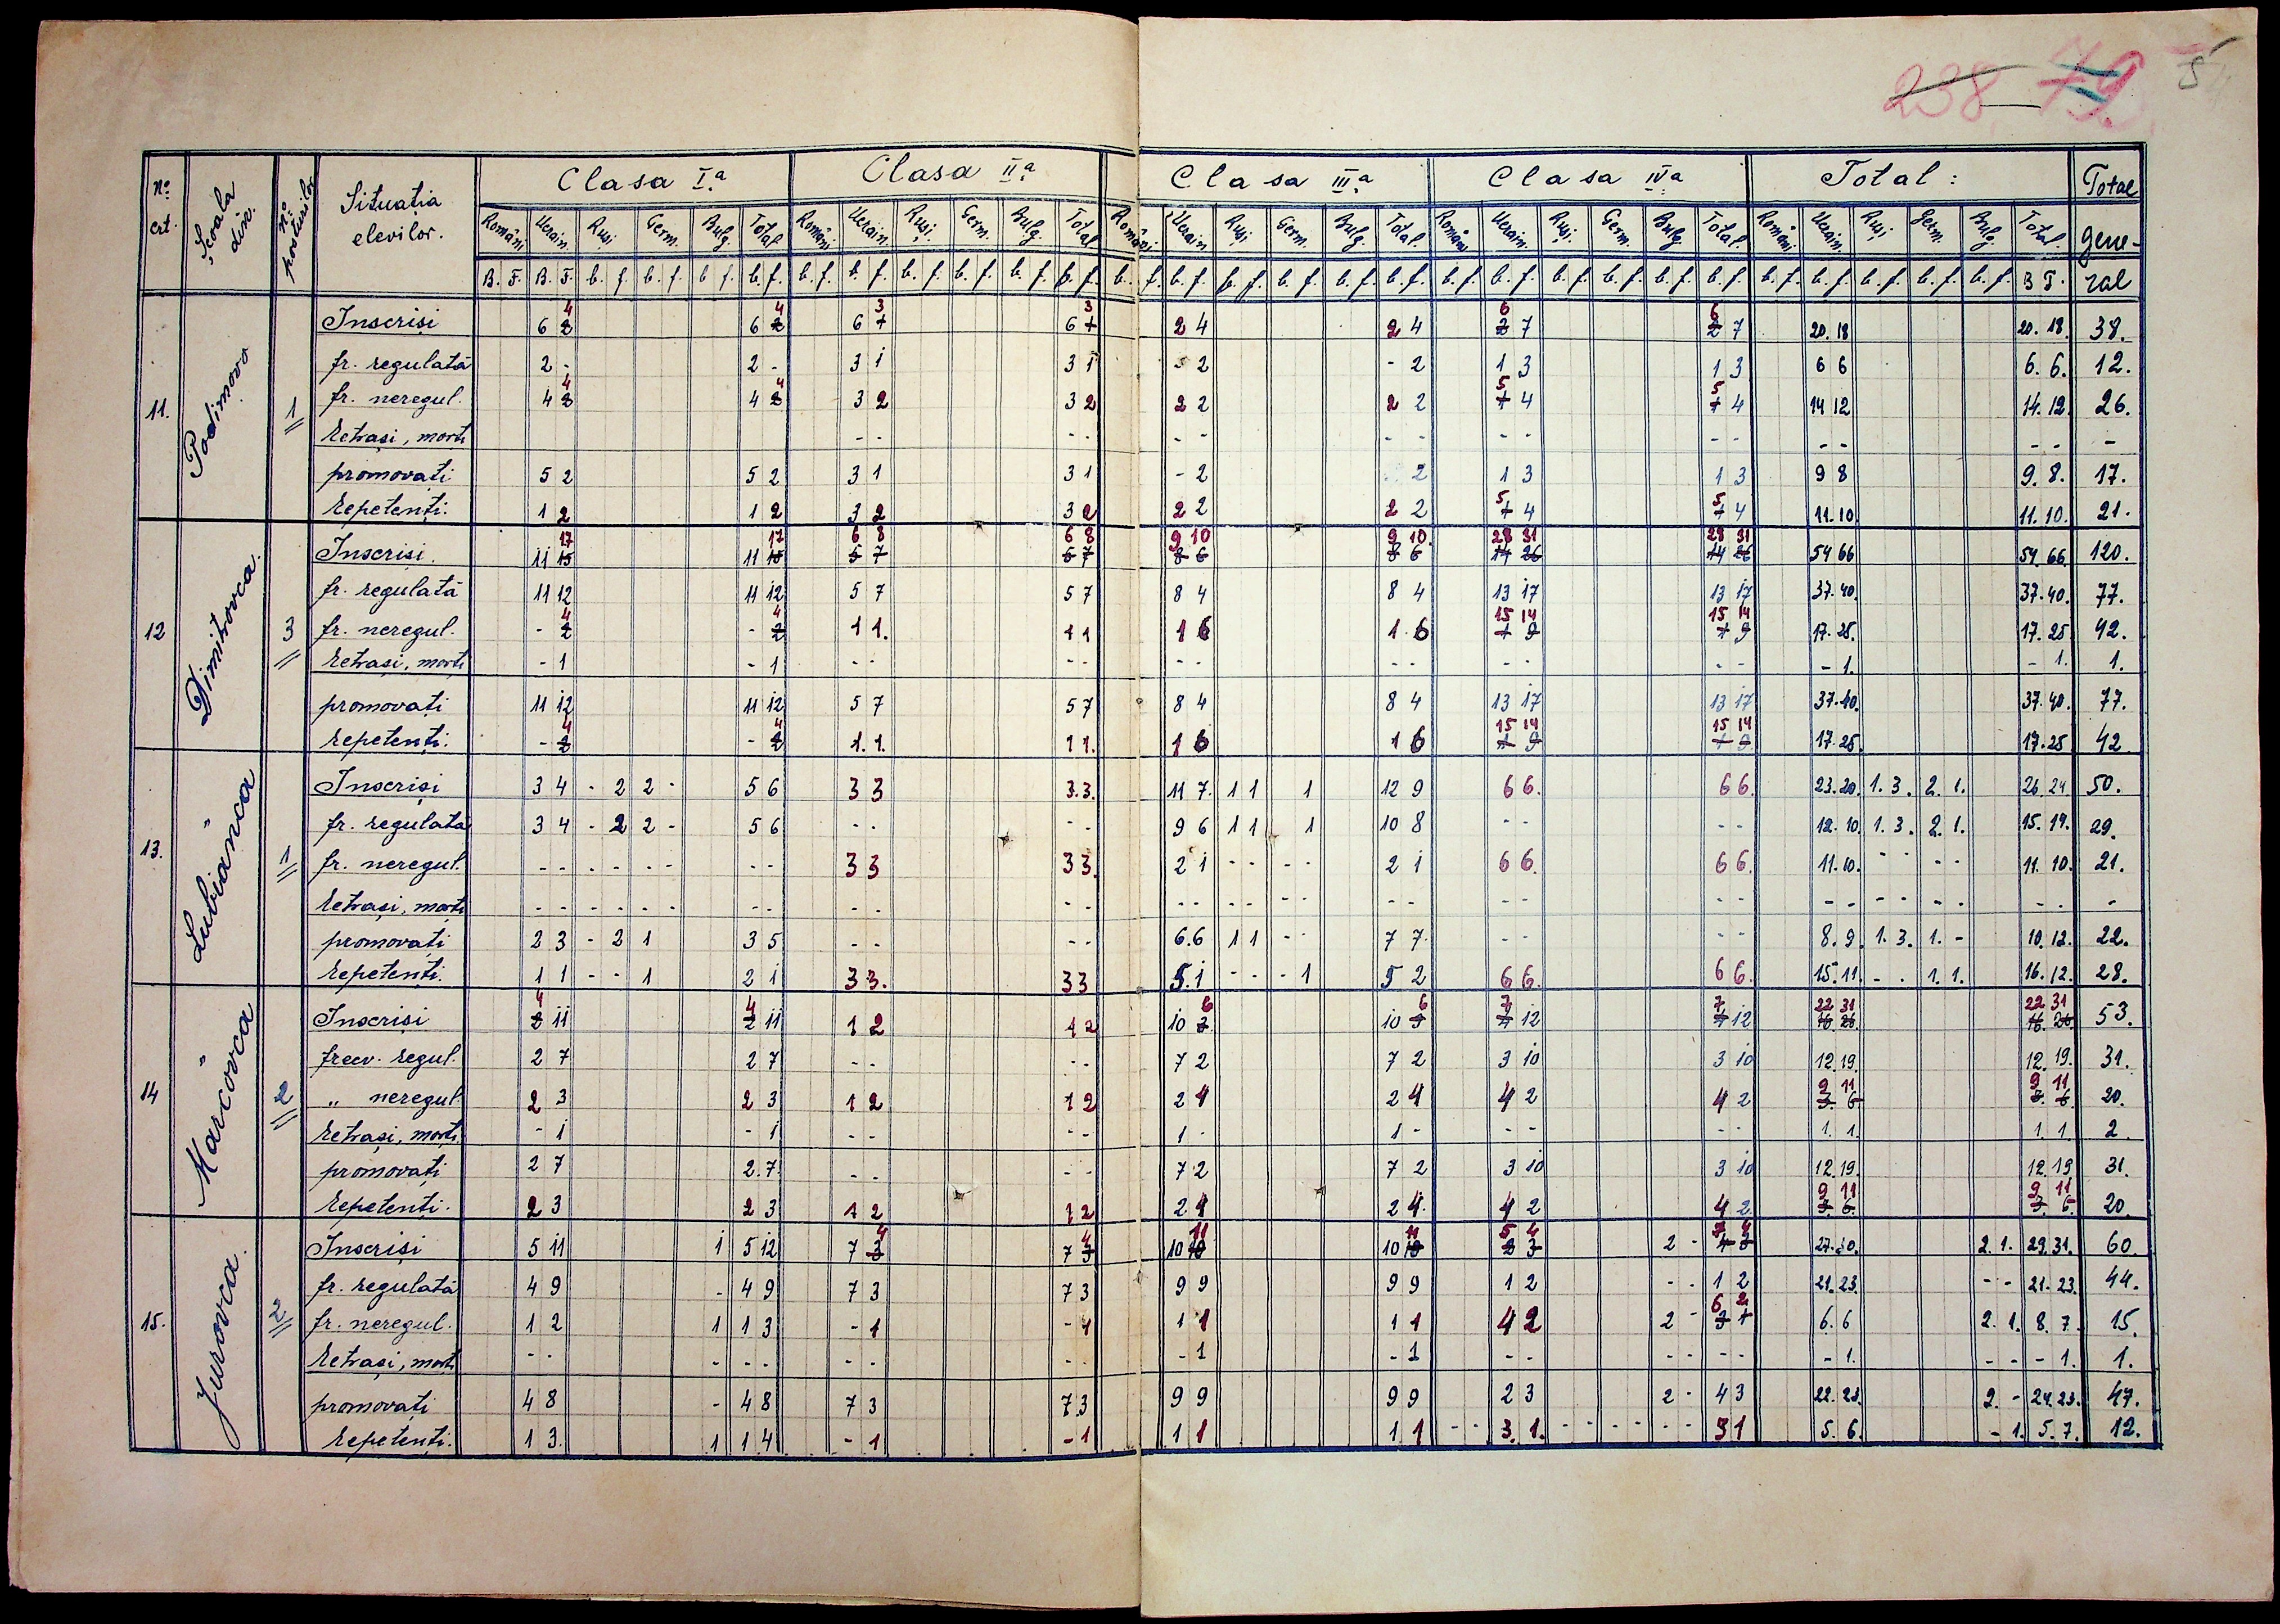 238. 79. 5
Nº crt. Școala din. Nº posturilor Situația elevilor. Clasa Iª Clasa IIª Clasa IIIª Clasa IVª Total: Total general
Români Ucrain. Ruși Germ. Bulg. Total Români Ucrain. Ruși. Germ. Bulg. Total Români Ucrain. Ruși. Germ. Bulg. Total. Români Ucrain. Ruși. Germ. Bulg. Total. Români. Ucrain. Ruși Germ. Bulg. Total.
B. F. B. F. b. f. b. f. b f. b. f. b. f. b. f. b. f. b. f. b. f. b. f. b. f. b. f. b. f. b. f. b. f. b. f. b. f. b. f. b. f. b. f. b. f. b. f. b. f. b. f. b. f. b. f. b. f. B F.
11. Podimovo 1
Inscriși 6 4 6 4 6 3 6 3 2 4 2 4 6 7 6 7 20. 18 20. 18. 38.
fr. regulată 2 - 2 - 3 1 3 1 - 2 - 2 1 3 1 3 6 6 6. 6. 12.
fr. neregul. 4 4 4 4 3 2 3 2 2 2 2 2 5 4 5 4 14 12 14. 12. 26.
Retrași, morți - - - - - - - - - - - - - - - - -
promovați 5 2 5 2 3 1 3 1 - 2 2 1 3 1 3 9 8 9. 8. 17.
Repetenți. 1 2 1 2 3 2 3 2 2 2 2 2 5 4 5 4 11. 10 11. 10. 21.
12 Dimitrovca. 3
Inscriși. 11 17 11 17 6 8 6 8 9 10 9 10. 28 31 28 31 54 66 54. 66 120.
fr. regulată 11 12 11 12 5 7 5 7 8 4 8 4 13 17 13 17 37. 40. 37. 40. 77.
fr. neregul. - 4 - 4 1 1. 1 1 1 6 1. 6 15 14 15 14 17. 25. 17. 25 42.
Retrași, morți - 1 - 1 - - - - - - - - - - - - - 1. - 1. 1.
promovați 11 12 11 12 5 7 5 7 8 4 8 4 13 17 13 17 37. 40. 37. 40. 77.
repetenți. - 4 - 4 1. 1. 1 1. 1 6 1 6 15 14 15 14 17. 25. 17. 25 42
13. Lubianca 1
Inscriși 3 4 - 2 2 - 5 6 3 3 3. 3. 11 7. 1 1 1 12 9 6 6. 6 6. 23. 20. 1. 3. 2. 1. 26. 24 50.
fr. regulată 3 4 - 2 2 - 5 6 - - - - 9 6 1 1 1 10 8 - - - - 12. 10. 1. 3. 2. 1. 15. 14. 29.
fr. neregul. - - - - - - - - 3 3 3 3. 2 1 - - - - 2 1 6 6. 6 6. 11. 10. - - - - 11. 10. 21.
Retrași, morți - - - - - - - - - - - - - - - - - - - - - - - - - - - - - - - - -
promovați 2 3 - 2 1 3 5 - - - - 6. 6 1 1 - - 7 7. - - - - 8. 9. 1. 3. 1. - 10. 12. 22.
Repetenți. 1 1 - - 1 2 1 3 3. 3 3 5. 1 - - - 1 5 2 6 6. 6 6. 15. 11 - - 1. 1. 16. 12. 28.
14 Marcovca 2
Inscriși 4 11 4 11 1 2 1 2 10 6 10 6 7 12 7 12 22 31 22 31 53.
frecv. regul. 2 7 2 7 - - - - 7 2 7 2 3 10 3 10 12. 19. 12. 19. 31.
" neregul. 2 3 2 3 1 2 1 2 2 4 2 4 4 2 4 2 9 11 9 11 20.
Retrași, morți - 1 - 1 - - - - 1 - 1 - - - - - 1. 1. 1. 1. 2
promovați 2 7 2. 7. - - - - 7 2 7 2 3 10 3 10 12. 19. 12. 19 31.
Repetenți. 2 3 2 3 1 2 1 2 2 4 2 4. 4 2 4 2 9 11 9 11 20.
15. Jurovca. 2
Inscriși 5 11 1 5 12 7 4 7 4 10 11 10 11 5 4 2 - 7 4 27. 30. 2. 1. 29. 31. 60.
fr. regulată 4 9 - 4 9 7 3 7 3 9 9 9 9 1 2 - - 1 2 21. 23. - - 21. 23. 44.
fr. neregul. 1 2 1 1 3 - 1 - 1 1 1 1 1 4 2 2 - 6 2 6. 6 2. 1. 8. 7. 15.
Retrași, morți - - - - - - - - - - 1 - 1 - - - - - - - 1. - - - 1. 1.
promovați 4 8 - 4 8 7 3 7. 3 9 9 9 9 2 3 2 - 4 3 22. 23. 2. - 24. 23. 47.
Repetenți. 1 3. 1 1 4 - 1 - 1 1 1 1 1 - - 3. 1. - - - - - - 5 1 5. 6. - 1. 5. 7. 12.